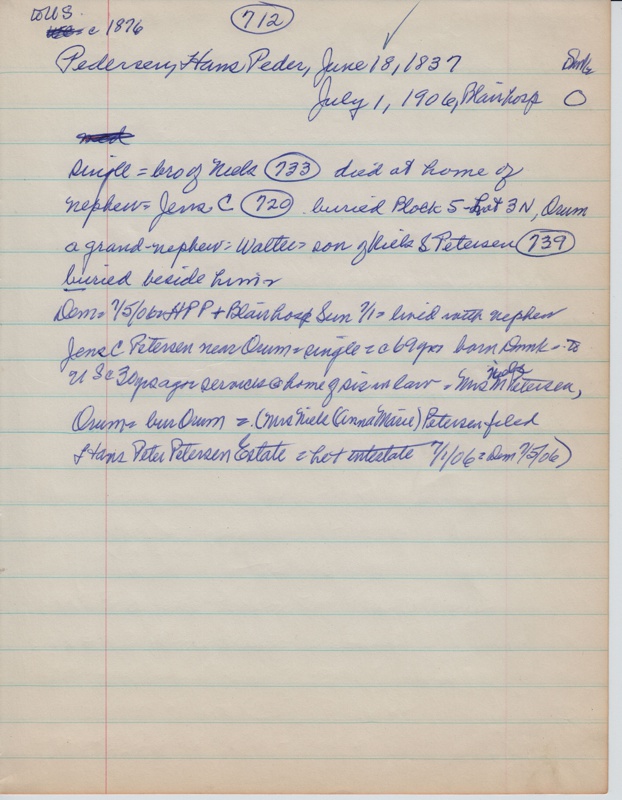 to US. 712
c 1876
Pedersen, Hans Peder, June 18, 1837 Dmk
July 1, 1906, Blair hosp O
single = bro of Niels 733 died at home of
nephew = Jens C 729. buried Block 5 - Lot 3N, Orum
a grand-nephew = Walter = son of Niels S Petersen 739
buried beside him =
Dem = 7/5/06 = HPP + Blair hosp Sun 7/1 = lived with nephew
Jens C Petersen near Orum = single = c 69 yrs born Dnmk = to
U S c 30 yrs ago = services @ home of sis in law = Mrs Niels Petersen,
Orum = bur Orum = (Mrs Niels (Anna Marie) Petersen filed
Hans Peter Petersen Estate = he intestate 7/1/06 = Dem 7/5/06)